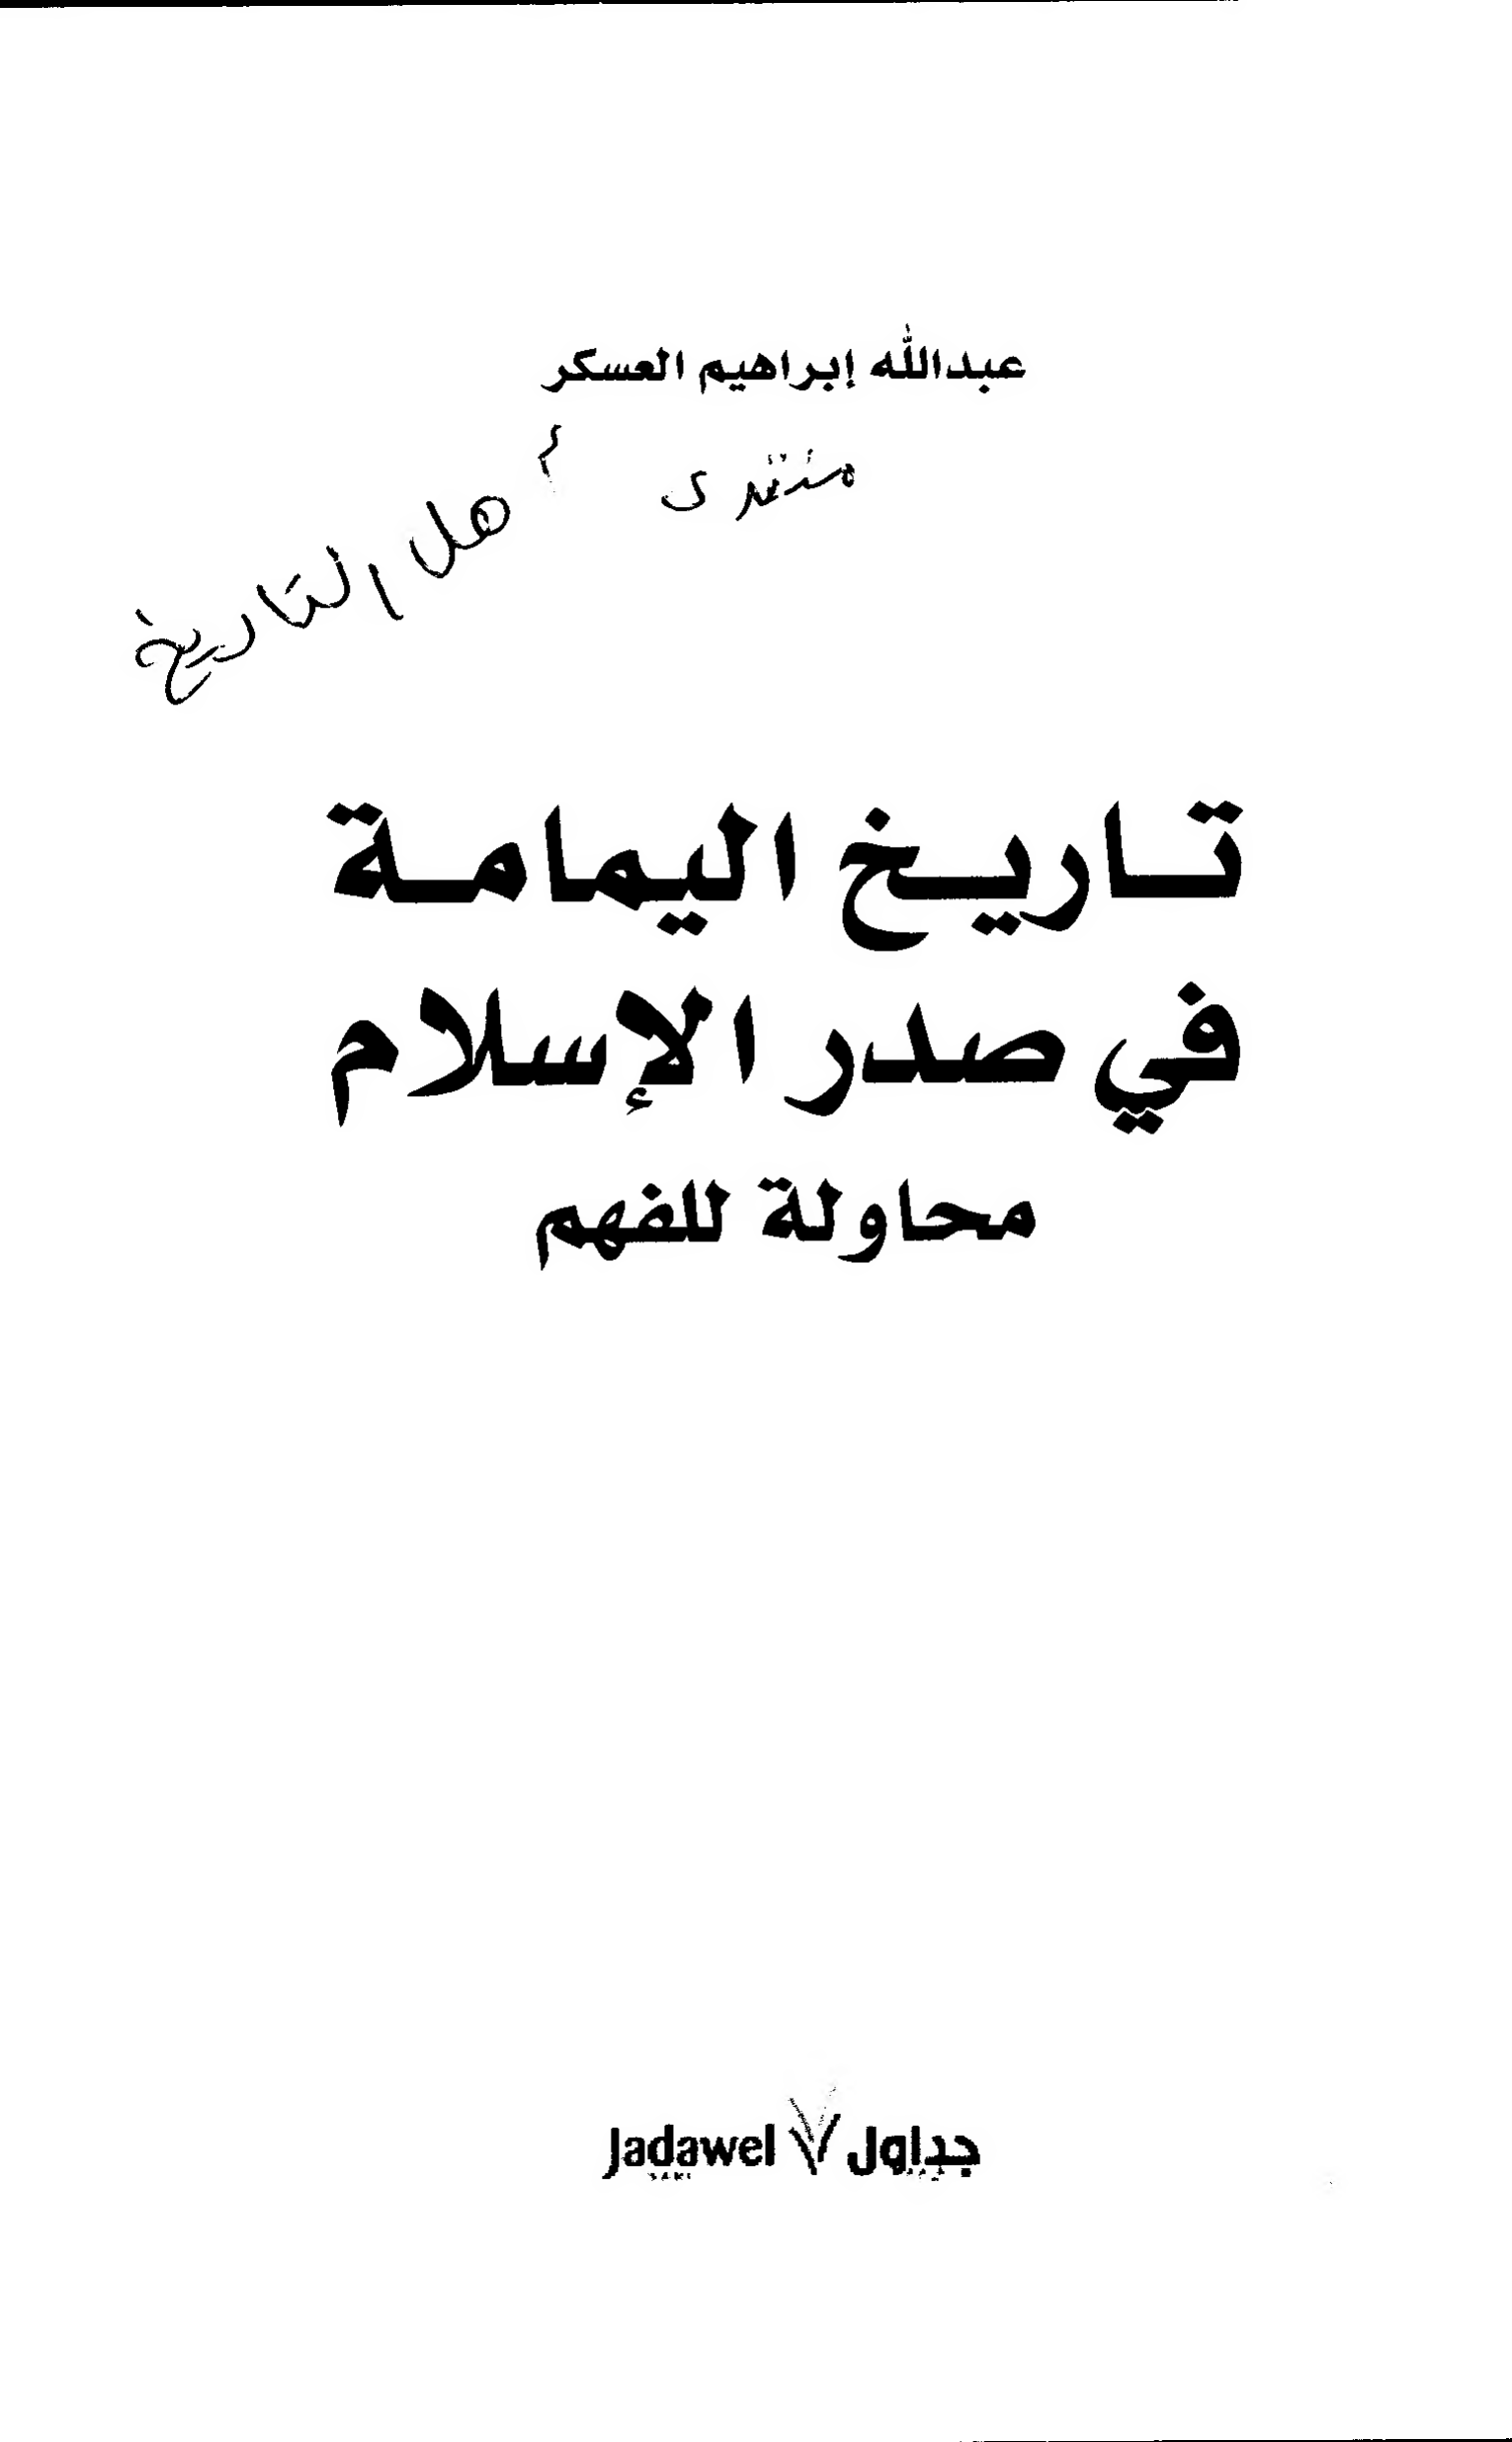 عبدالله إبراهيم العسكر
منتدى
أهل التاريخ
تاريخ اليمامة
في صدر الإسلام
محاولة للفهم
جداول Jadawel